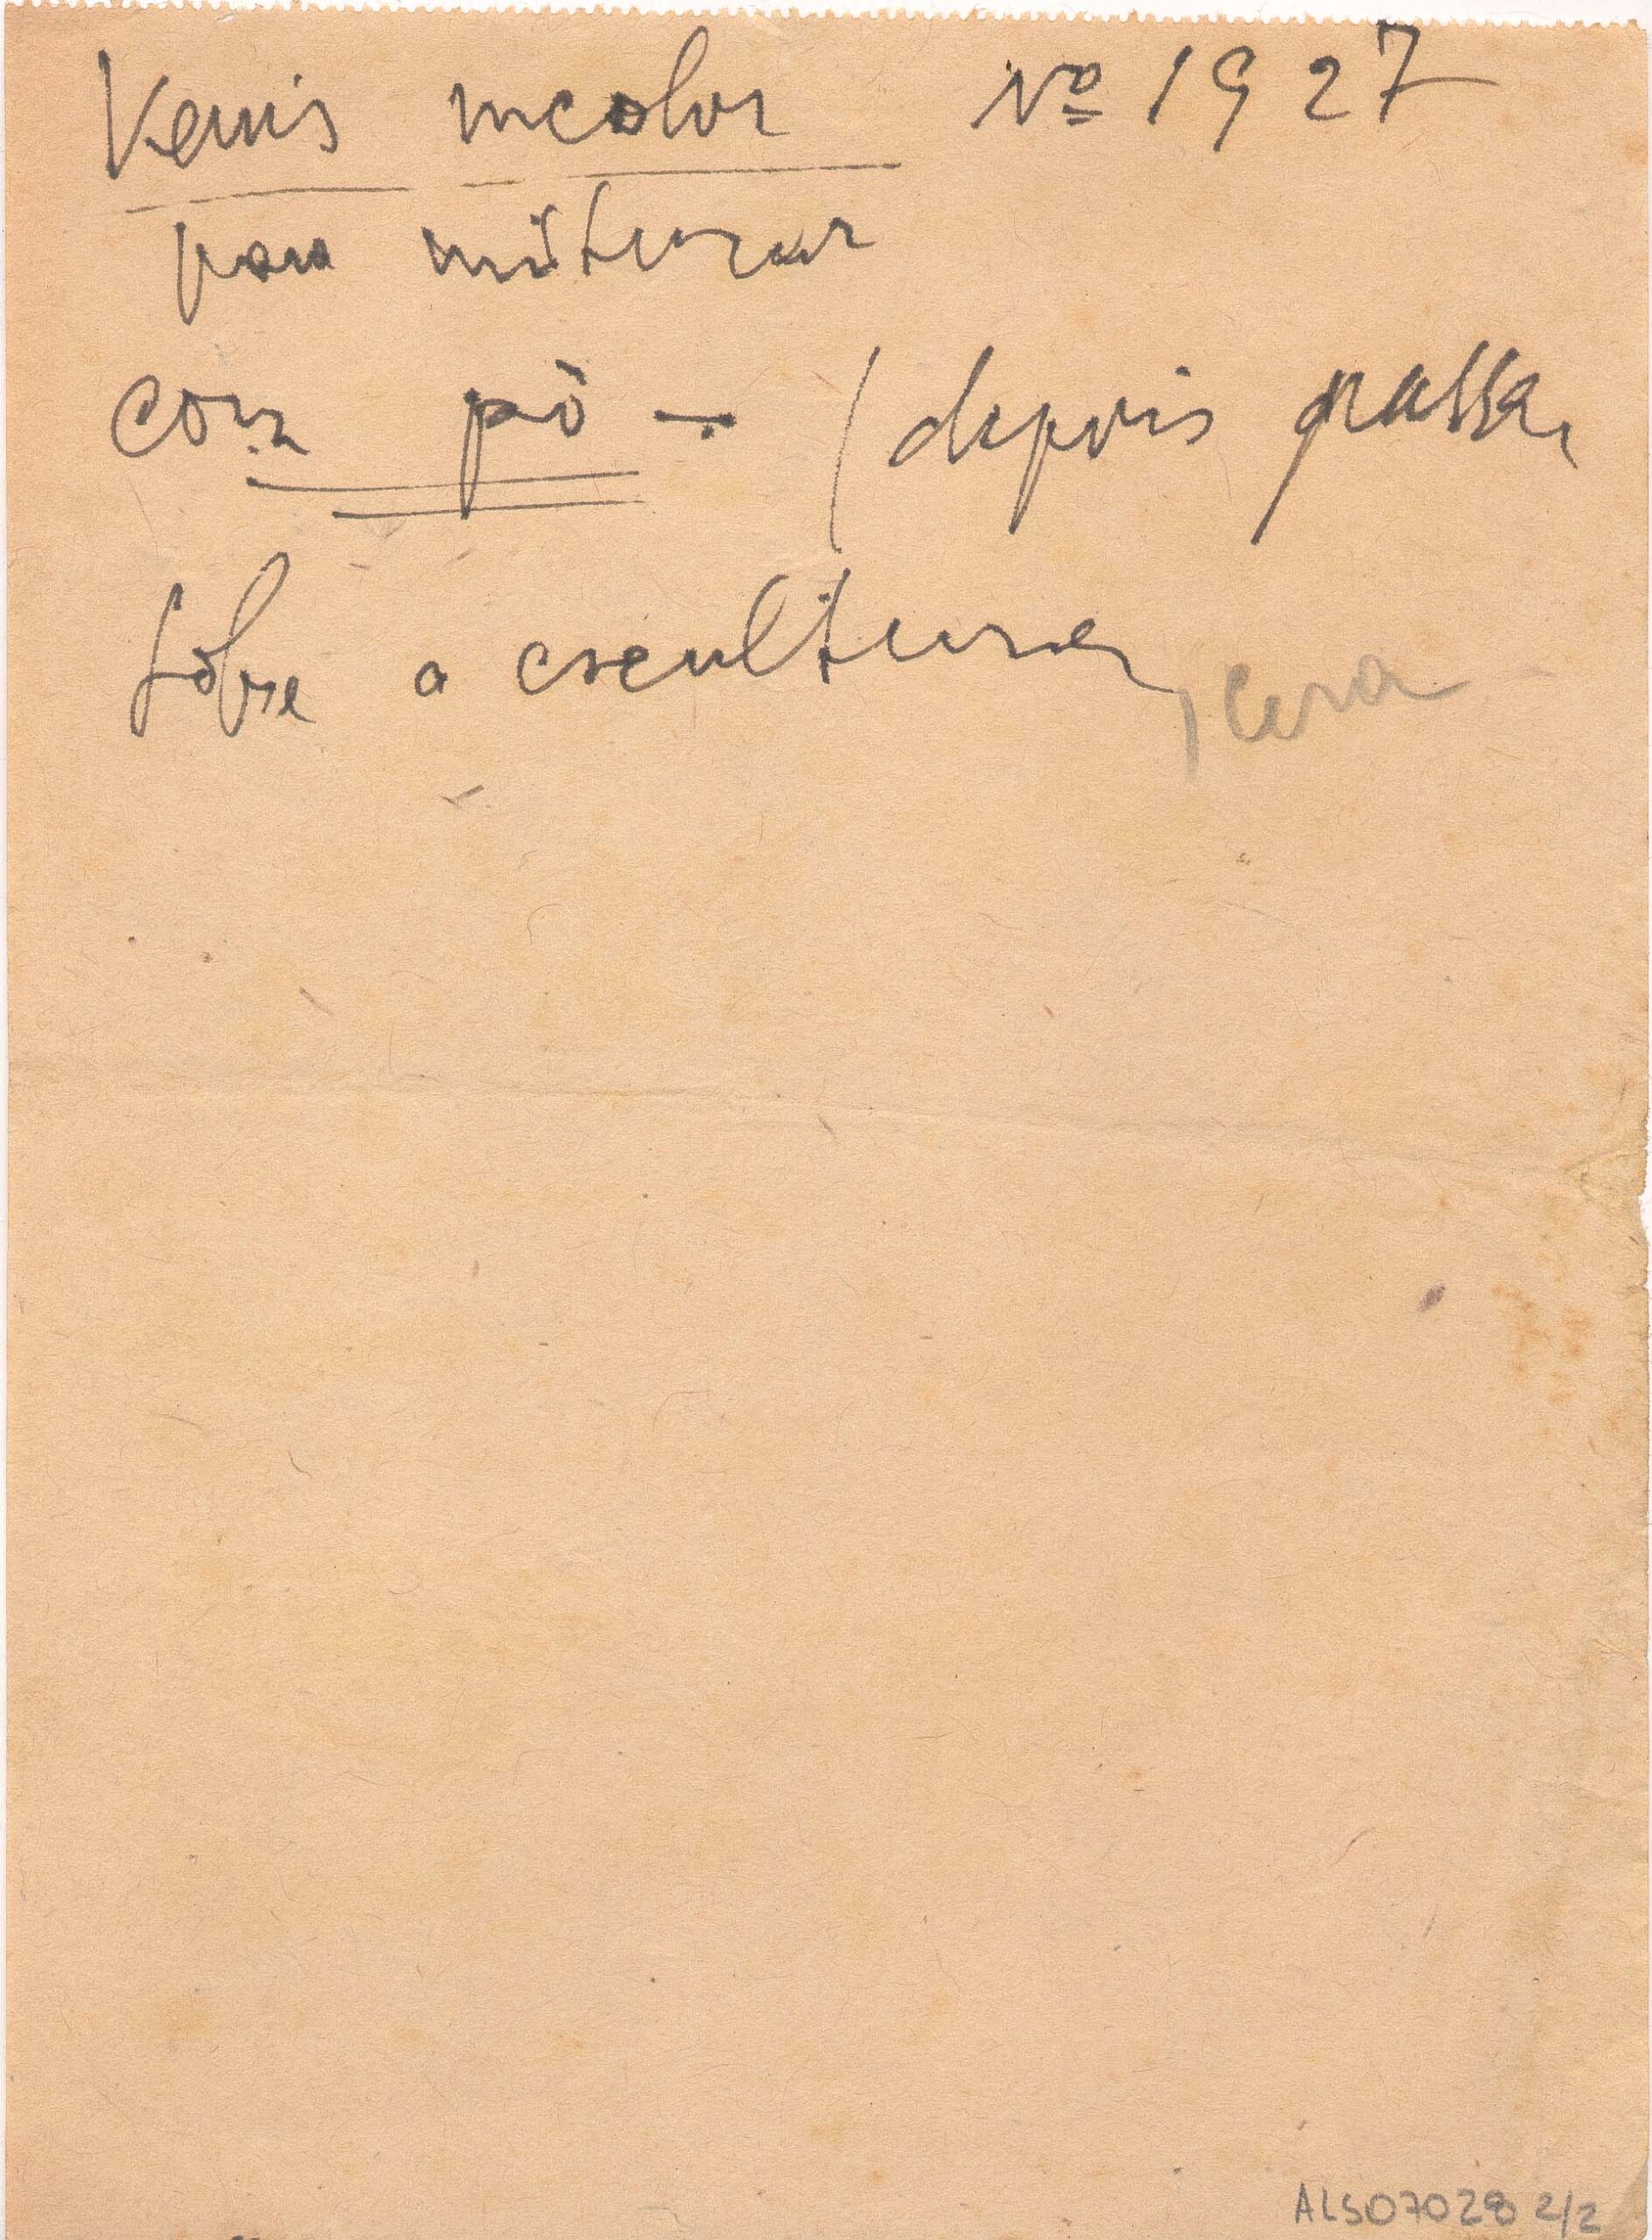 Vernis incolor Nº 1927
para misturar
com pó — (depois passar
sobre a escultura, cera
ALS07028 2/2